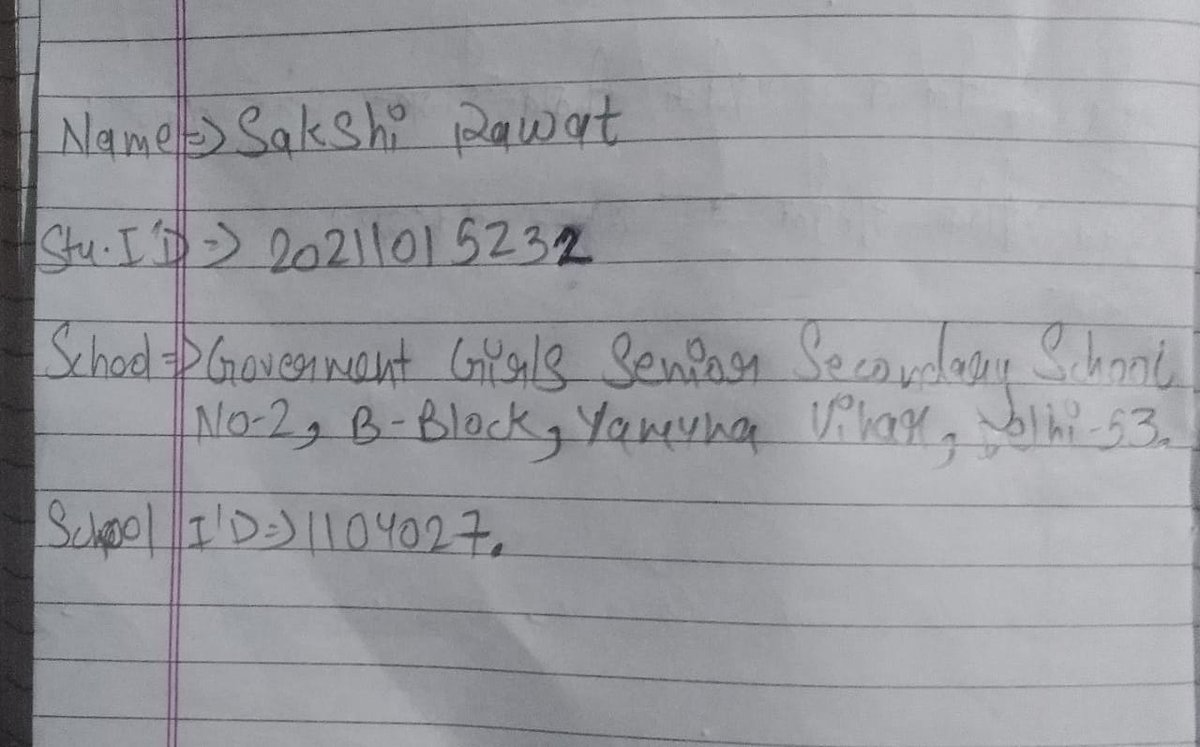 Name => Sakshi Rawat
Stu. I'D => 20211015232
School => Goverment Girls Senior Secondary School
No-2, B-Block, Yamuna Vihar, Delhi-53.
School I'D => 1104027.